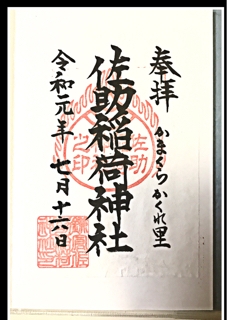 奉拝
かまくらかくれ里
佐助稲荷神社
佐助
之印
令和元年 七月十六日